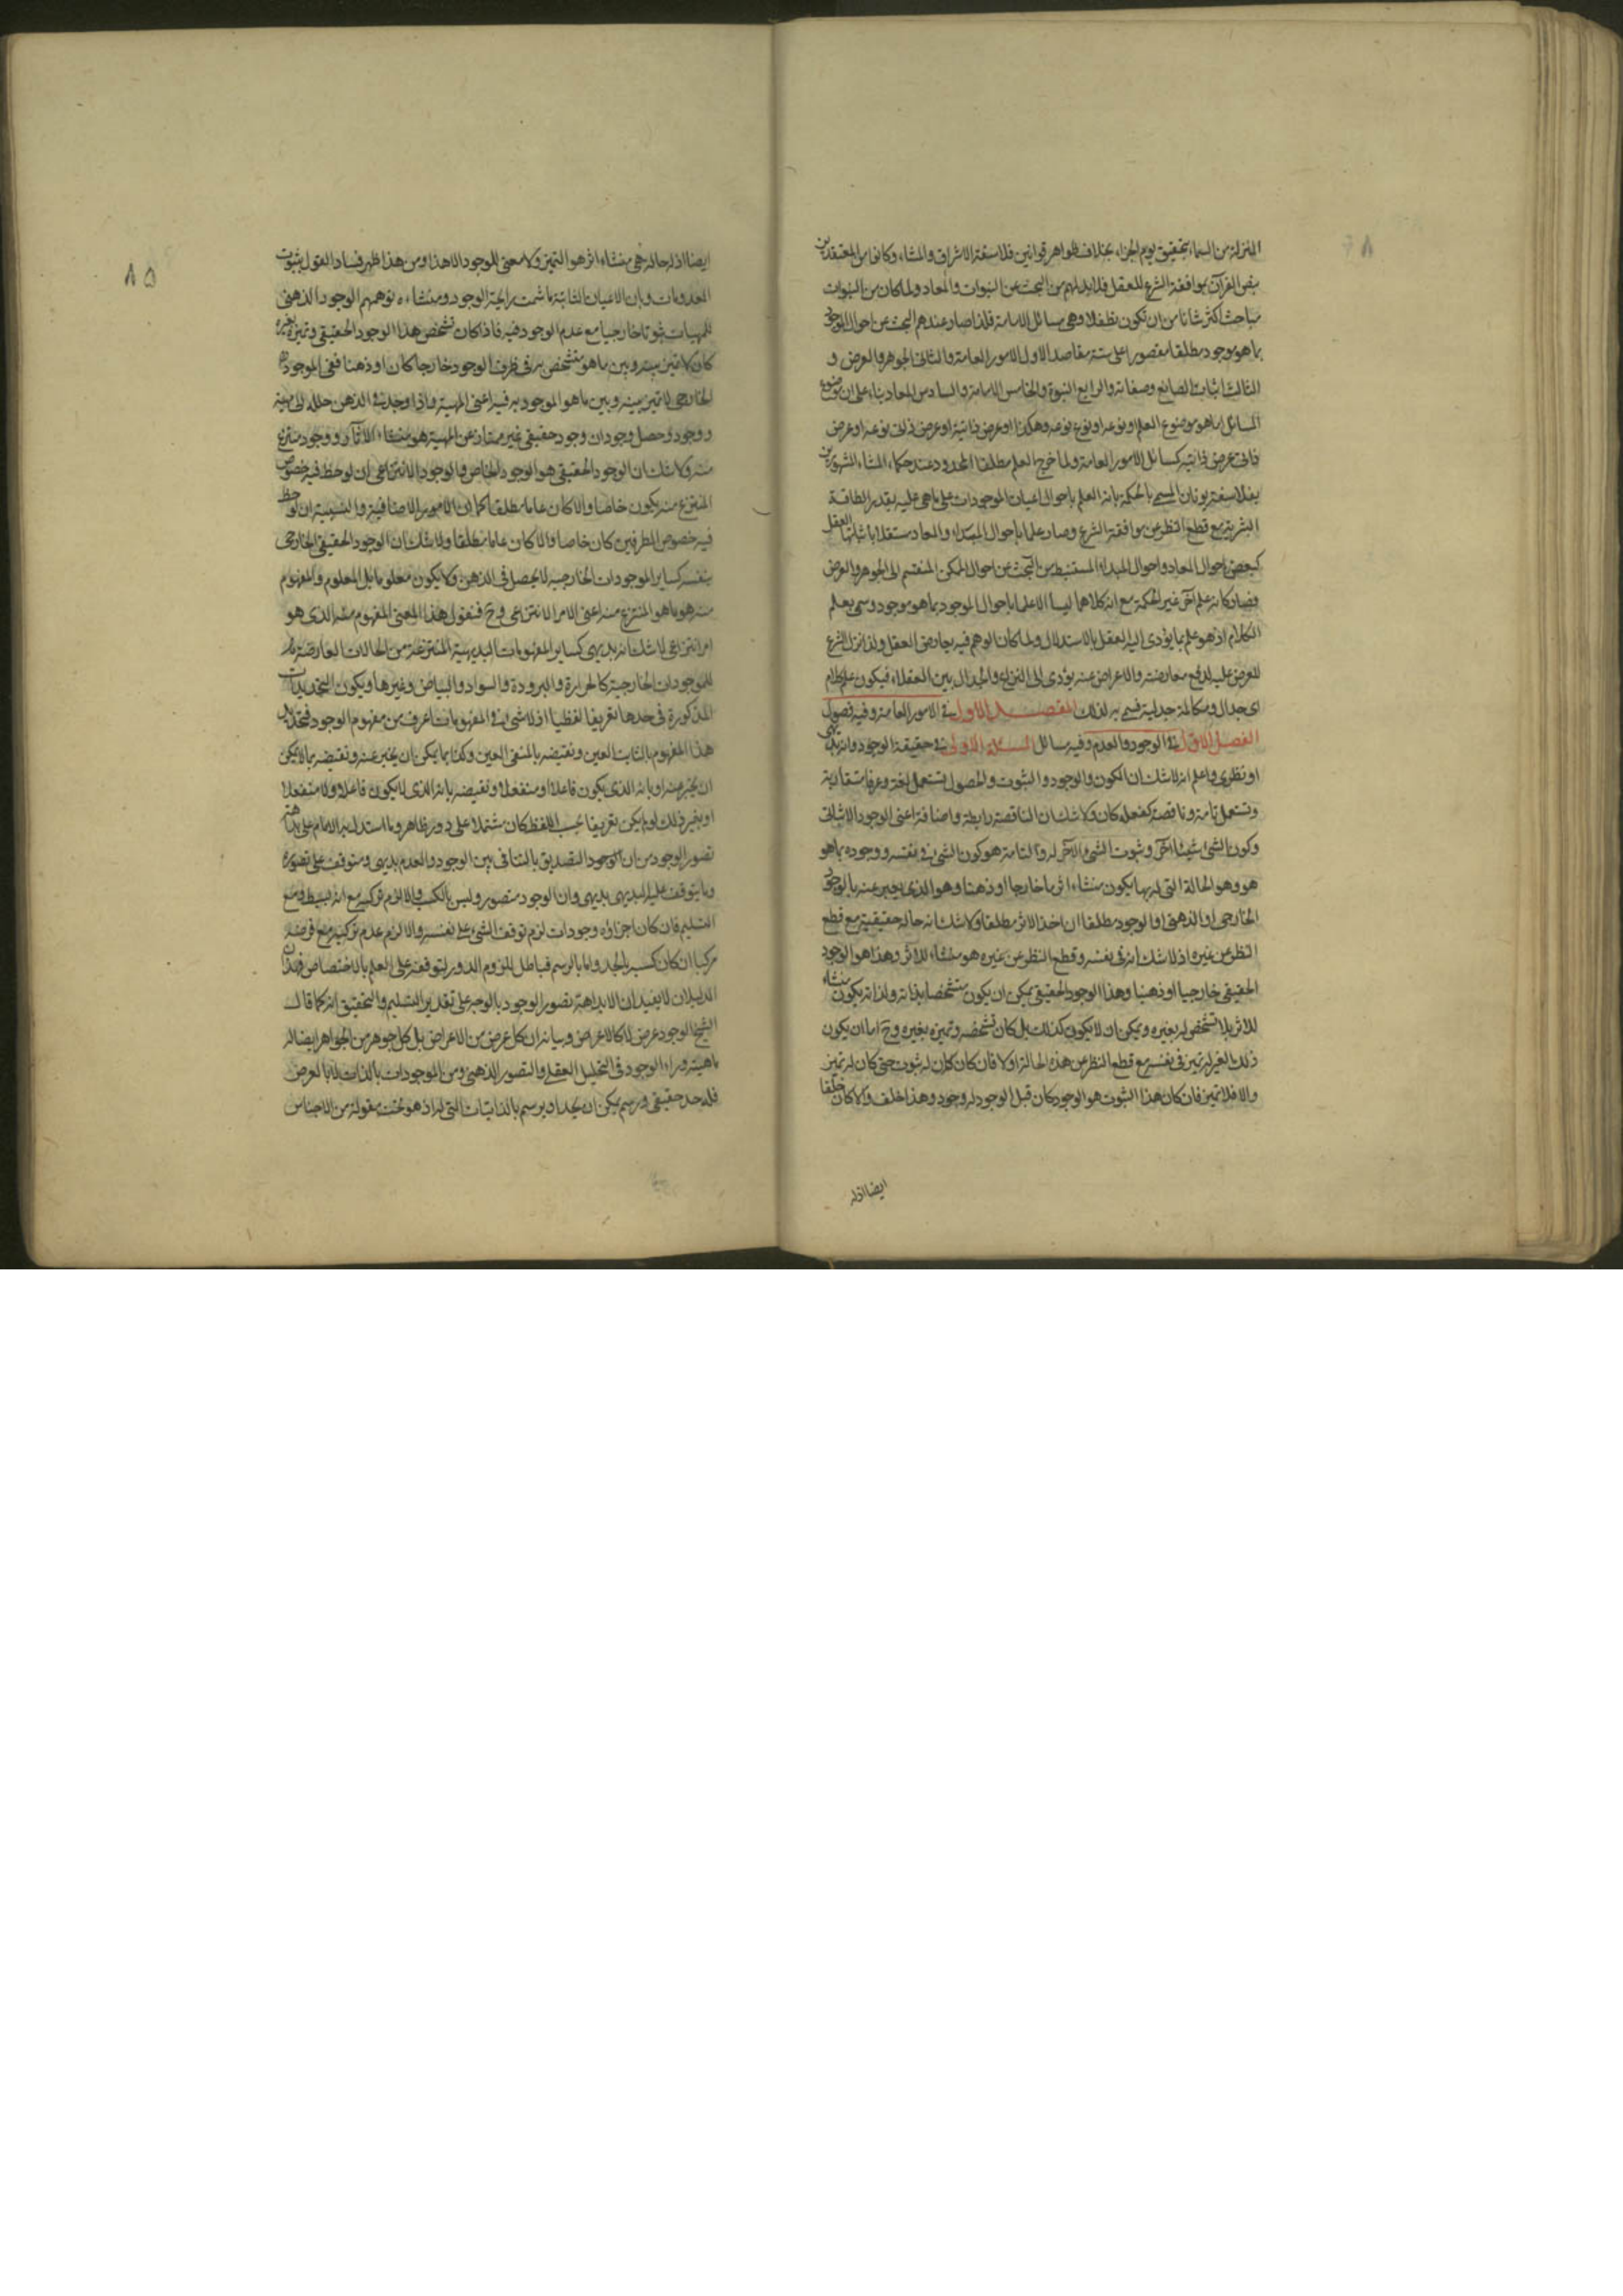 المنزلة من السماء بتحقيق يوم الجزاء بخلاف ظواهر قوانين فلاسفة الاشراق والمشاء وكانوا من المعتقدين
بنص القرآن بموافقة الشرع للعقل فلا بد لهم من البحث عن النبوات والمعاد ولما كان من النبوات
مباحث اكثر شانا من ان تكون تطفلا وهى مسائل الامامة فلذا صار عندهم البحث عن احوال الموجود
بما هو موجود مطلقا مقصورا على ستة مقاصد الاول الامور العامة والثانى الجوهر والعرض و
الثالث اثبات الصانع وصفاته والرابع النبوة والخامس الامامة والسادس المعاد بناء على ان موضوع
المسائل اما هو موضوع العلم او نوعه او نوع نوعه وهكذا او عرض ذاتى له او عرض ذاتى نوعه او عرض
ذاتى عرض ذاتيه كمسائل الامور العامة ولما خرج العلم مطلقا المحدود عند حكماء المشاء المشهورين
بفلاسفة يونان المسمى بالحكمة بانه العلم باحوال اعيان الموجودات على ما هى عليه بقدر الطاقة
البشرية مع قطع النظر عن موافقة الشرع وصار علما باحوال المبداء والمعاد مستقلا باثباتها العقل
كبعض احوال المعاد واحوال المبداء المستنبط من البحث عن احوال الممكن المنقسم الى الجوهر والعرض
فصار كانه علم آخر غير الحكمة مع انه كلاهما ليسا الا علما باحوال الموجود بما هو موجود وسمى بعلم
الكلام اذ هو علم بما يؤدى اليه العقل بالاستدلال ولما كان الوهم فيه يعارض العقل ولذا نزل الشرع
للعرض عليه لدفع معارضته والاعراض عنه يؤدى الى النزاع والجدال بين العقلاء فيكون علم كلام
اى جدال ومكالمة جدلية فسمى به لذلك المقصد الاول فى الامور العامة وفيه فصول
الفصل الاول فى الوجود والعدم وفيه مسائل المسئلة الاولى فى حقيقة الوجود وانه بديهى
او نظرى واعلم انه لا شك ان الكون والوجود والثبوت والحصول تستعمل لغة وعرفا متقاربة
وتستعمل تامة وناقصة كفعله كان ولا شك ان الناقصة رابطة واضافة اعنى الوجود الاثباتى
وكون الشئ شيئا آخر وثبوت الشئ لآخر له والتامة هو كون الشئ فى نفسه ووجوده بما هو
هو وهو الحالة التى له بها يكون منشاء اثر ما خارجا او ذهنا وهو الذى يعبر عنه بالوجود
الخارجى او الذهنى او الوجود مطلقا ان اخذ الاثر مطلقا ولا شك انه حالة حقيقية مع قطع
النظر عن غيره اذ لا شك انه فى نفسه وقطع النظر عن غيره هو منشاء للاثر وهذا هو الوجود
الحقيقى خارجيا او ذهنيا وهذا الوجود الحقيقى يمكن ان يكون متشخصا بذاته ولذاته يكون منشاء
للاثر بلا تشخص له بغيره ويمكن ان لا يكون كذلك بل كان تشخصه وتميزه بغيره وح اما ان يكون
ذلك الغير له تميز فى نفسه مع قطع النظر عن هذه الحالة او لا فان كان كان له ثبوت حتى كان له تميز
والا فلا تميز فان كان هذا الثبوت هو الوجود كان قبل الوجود له وجود وهذا خلف والا كان خلفا
ايضا اذ له
٨٥
ايضا اذ له حالة هى منشاء اثر هو التميز ولا معنى للوجود الا هذا ومن هذا ظهر فساد القول بثبوت
المعدومات وبان الاعيان الثابتة ما شمت رايحة الوجود ومنشاءه توهمهم الوجود الذهنى
للمهيات ثبوتا خارجيا مع عدم الوجود فيه فاذا كان تشخص هذا الوجود الحقيقى وتميزه بغيره
كان لا تميز بينه وبين ما هو متشخص به فى ظرف الوجود خارجا كان او ذهنا ففى الموجود
الخارجى لا تميز بينه وبين ما هو الموجود به فيه اعنى المهية واذا وجد فى الذهن حلله الى مهية
ووجود وحصل وجودان وجود حقيقى غير ممتاز عن المهية هو منشاء الآثار ووجود منتزع
منه ولا شك ان الوجود الحقيقى هو الوجود الخاص والوجود الانتزاعى ان لوحظ فيه خصوص
المنتزع منه يكون خاصا والا كان عاما مطلقا كما ان الامور الاضافية والنسبية ان لوحظ
فيه خصوص الطرفين كان خاصا والا كان عاما مطلقا ولا شك ان الوجود الحقيقى الخارجى
بنفسه كساير الموجودات الخارجية لا يحصل فى الذهن ولا يكون معلوما بل المعلوم والمفهوم
منه هو ما هو المنتزع منه اعنى الامر الانتزاعى وح فنقول هذا المعنى المفهوم منه الذى هو
امر انتزاعى لا شك انه بديهى كساير المفهومات البديهية المنتزعة من الحالات العارضة
للموجودات الخارجية كالحرارة والبرودة والسواد والبياض وغيرها ويكون التحديدات
المذكورة فى حدها تعريفا لفظيا اذ لا شئ فى المفهومات اعرف من مفهوم الوجود فتحديد
هذا المفهوم بالثابت العين ونقيضه بالمنفى العين وكذا بما يمكن ان يخبر عنه ونقيضه بما لا يمكن
ان يخبر عنه او بانه الذى يكون فاعلا او منفعلا ونقيضه بانه الذى لا يكون فاعلا ولا منفعلا
او بغير ذلك لو لم يكن تعريفا بحسب اللفظ كان مشتملا على دور ظاهر وما استدل به الامام على بداهته
تصور الوجود من ان الوجود التصديق بالتنافى بين الوجود والعدم بديهى ومتوقف على تصوره
وما يتوقف عليه البديهى بديهى وان الوجود متصور وليس بالكسب والا لزم تركبه مع انه بسيط ومع
التسليم فان كان اجزاؤه وجودات لزم توقف الشئ على نفسه والا لزم عدم تركبه مع فرضه
مركبا ان كان كسبه بالحد واما بالرسم فباطل للزوم الدور لتوقفه على العلم بالاختصاص فهذان
الدليلان لا يفيدان الا بداهة تصور الوجود بالوجه على تقدير التسليم والتحقيق انه كما قال
الشيخ الوجود عرض لا كالاعراض وبيانه ان كل عرض من الاعراض بل كل جوهر من الجواهر ايضا له
ماهية وراء الوجود فى التحليل العقلى والتصور الذهنى ومن الموجودات بالذات لا بالعرض
فله حد حقيقى ورسم يمكن ان يحد او يرسم بالذاتيات التى له اذ هو تحت مقولة من الاجناس